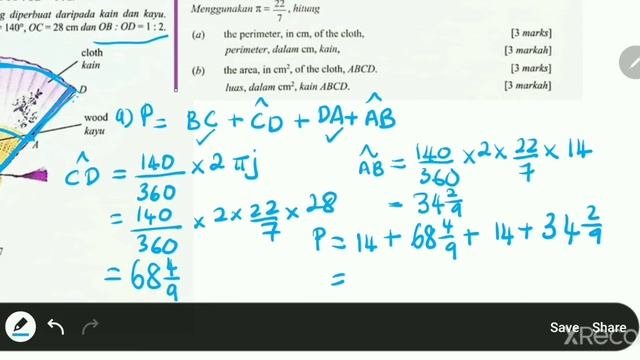 g diperbuat daripada kain dan kayu.
= 140°, OC = 28 cm dan OB : OD = 1 : 2.
cloth
kain
D
wood
kayu
A
Menggunakan π = 22/7, hitung
(a) the perimeter, in cm, of the cloth, [3 marks]
perimeter, dalam cm, kain, [3 markah]
(b) the area, in cm², of the cloth, ABCD. [3 marks]
luas, dalam cm², kain ABCD. [3 markah]
a) P = BC + ĈD + DA + ÂB
ĈD = 140/360 × 2πj
= 140/360 × 2 × 22/7 × 28
= 68 4/9
ÂB = 140/360 × 2 × 22/7 × 14
= 34 2/9
P = 14 + 68 4/9 + 14 + 34 2/9
=
Save Share
XReco